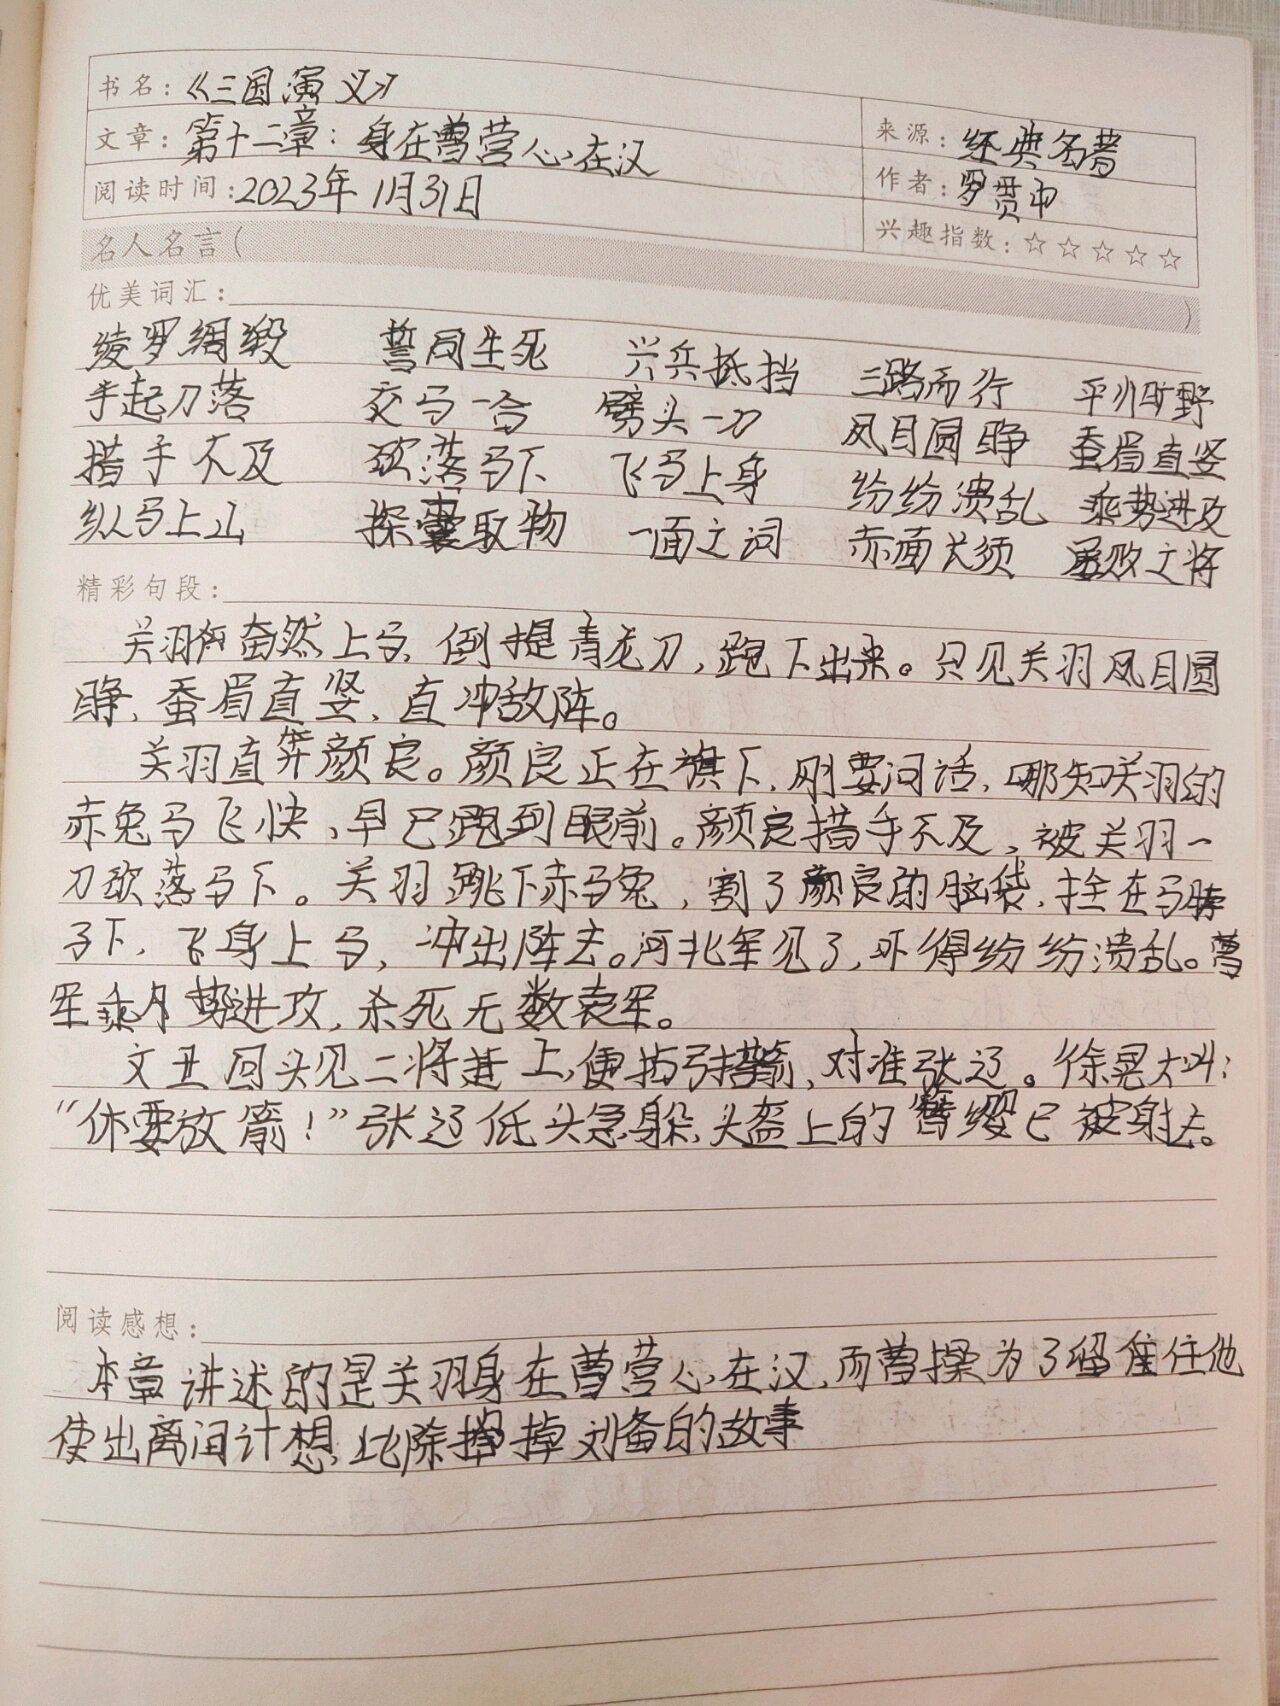 书名：《三国演义》
文章：第十二章：身在曹营心在汉
来源：经典名著
阅读时间：2023年1月31日
作者：罗贯中
兴趣指数：☆☆☆☆☆
名人名言（ ）
优美词汇：
绫罗绸缎 誓同生死 兴兵抵挡 三路而行 平川旷野
手起刀落 交马一合 劈头一刀 凤目圆睁 蚕眉直竖
措手不及 砍落马下 飞马上身 纷纷溃乱 乘势进攻
纵马上山 探囊取物 一面之词 赤面长须 勇败之将
精彩句段：
关羽奋然上马，倒提青龙刀，跑下出来。只见关羽凤目圆
睁，蚕眉直竖，直冲敌阵。
关羽直奔颜良。颜良正在旗下，刚要问话，哪知关羽的
赤兔马飞快，早已跑到眼前。颜良措手不及，被关羽一
刀砍落马下。关羽跳下赤马兔，割了颜良的脑袋，拴在马脖
子下，飞身上马，冲出阵去。河北军见了，吓得纷纷溃乱。曹
军乘势进攻，杀死无数袁军。
文丑回头见二将赶上，便拈弓搭箭，对准张辽。徐晃大叫：
“休要放箭！”张辽低头急躲，头盔上的簪缨已被射去。
阅读感想：
本章讲述的是关羽身在曹营心在汉，而曹操为了留住他
使出离间计想此除掉刘备的故事